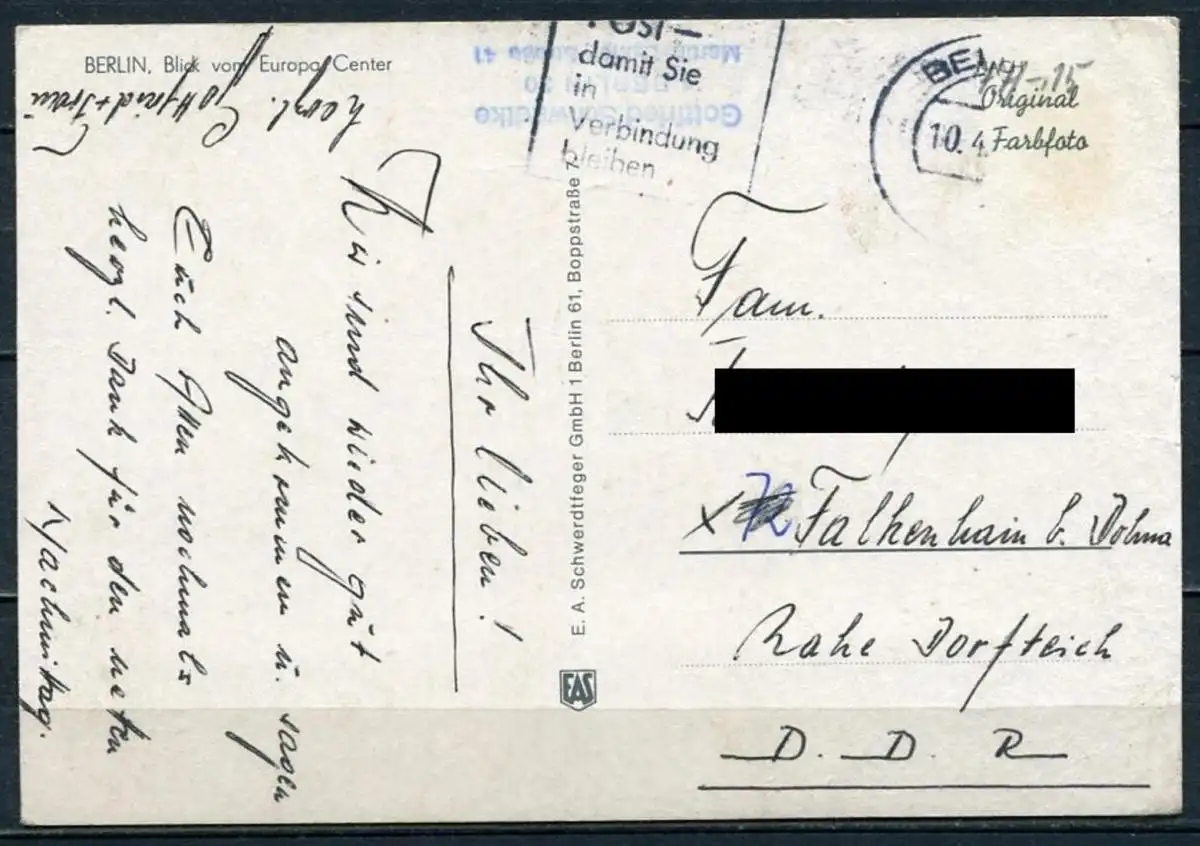 BERLIN, Blick vom Europa Center
Ihr lieben!
Wir sind wieder gut
angekommen u. sagen
Euch Allen nochmals
herzl. Dank für den netten
Nachmittag.
herzl.
Gottfried + Frau
E. A. Schwerdtfeger GmbH 1 Berlin 61, Boppstraße 7
FAS
Post –
damit Sie
in
Verbindung
bleiben
Gottfried Schwedtke
BERLIN 20
Straße 41
BE
10. 4.
Original
Farbfoto
Fam.
x Falkenhain b. Dohna
Nahe Dorfteich
D. D. R